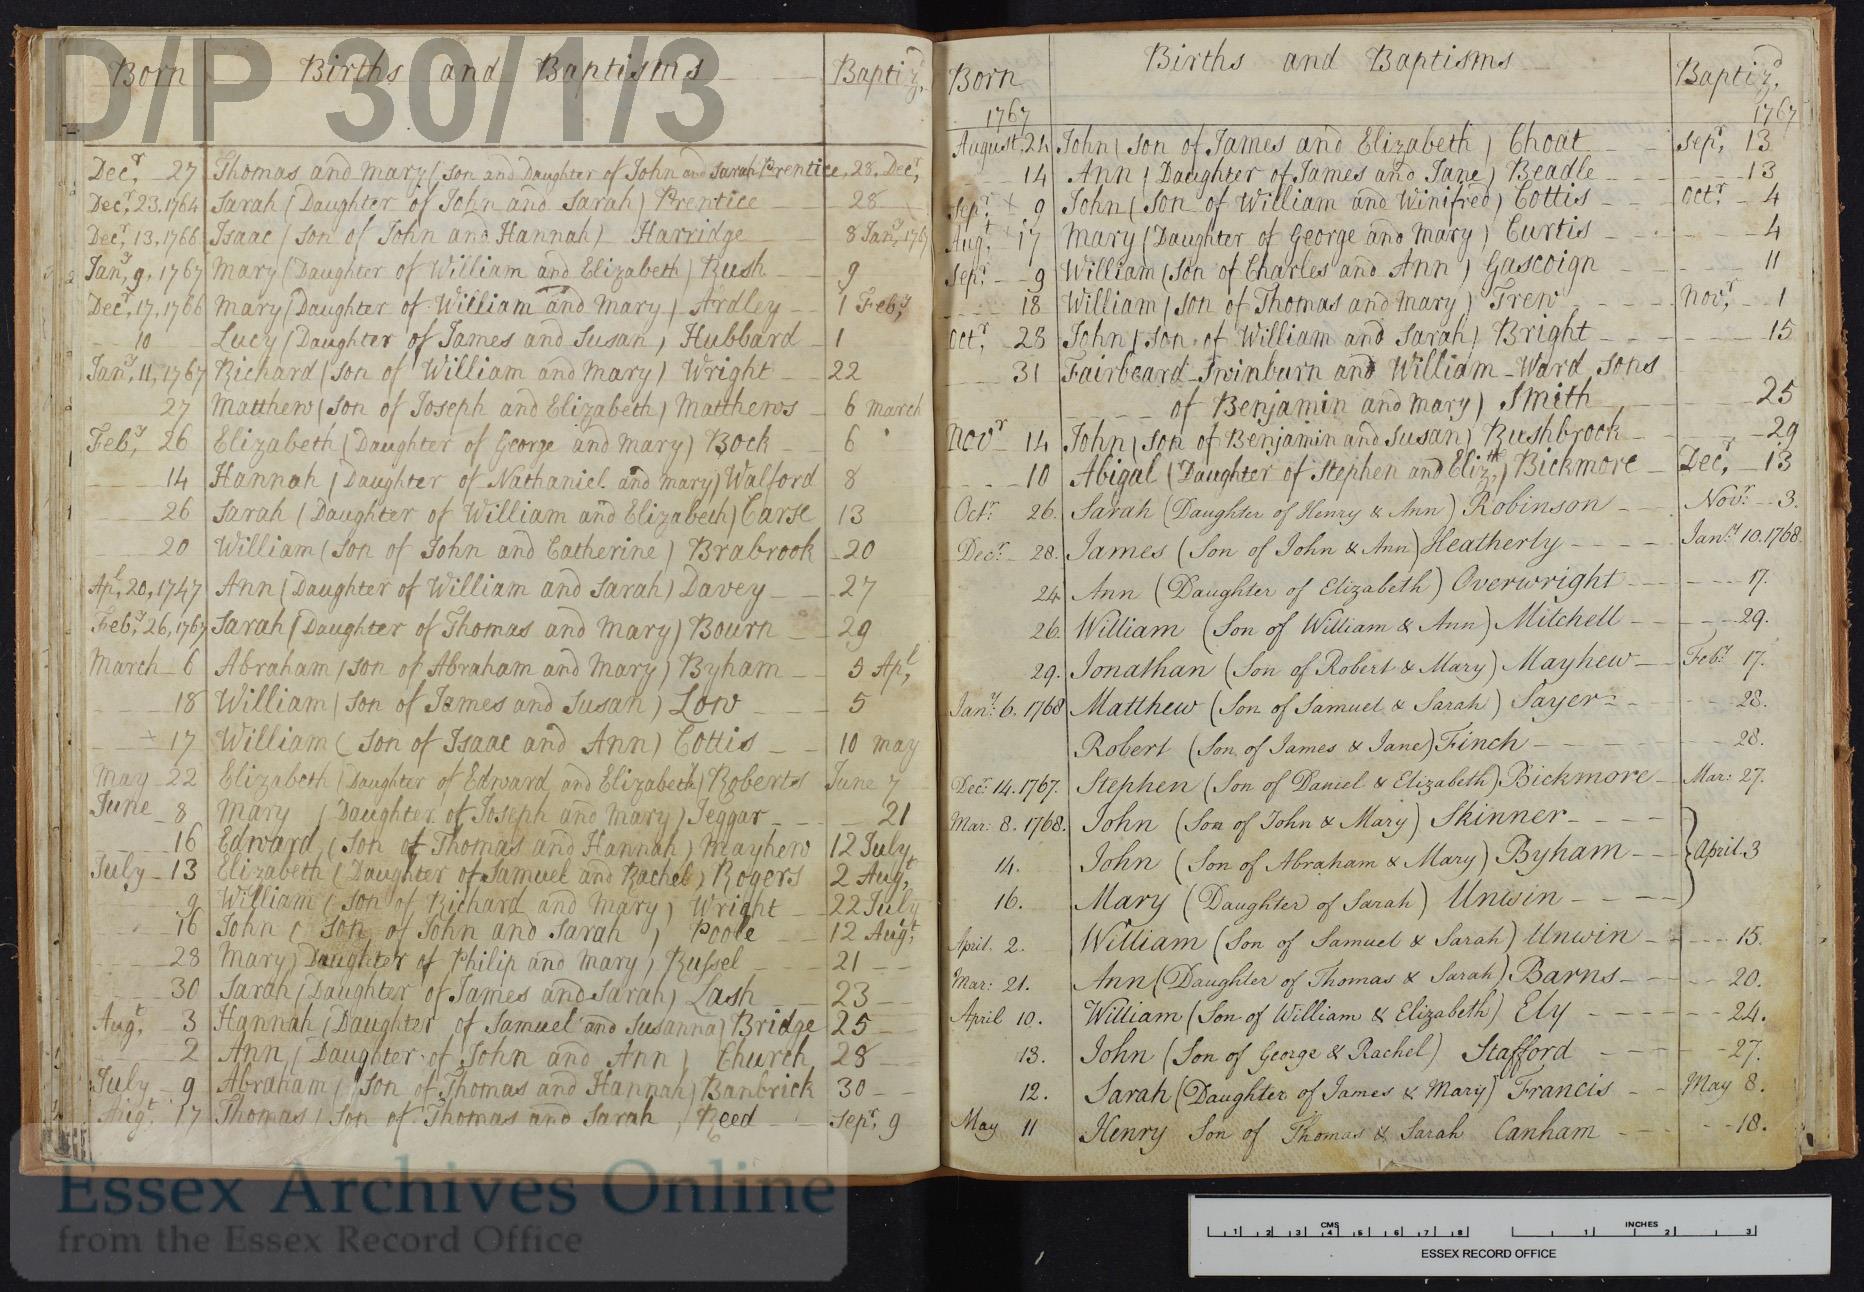 D/P 30/1/3
Born Births and Baptisms Baptizd.
Decr. 27 Thomas and Mary (Son and Daughter of John and Sarah Prentice. 28. Decr.
Decr. 23. 1764 Sarah (Daughter of John and Sarah) Prentice 28
Decr. 13, 1766 Isaac (Son of John and Hannah) Harridge 8 Jany. 1767
Jany. 9, 1767 Mary (Daughter of William and Elizabeth) Rush 9
Decr. 17, 1766 Mary (Daughter of William and Mary) Ardley 1 Feby.
10 Lucy (Daughter of James and Susan) Hubbard 1
Jany. 11, 1767 Richard (Son of William and Mary) Wright 22
27 Matthew (Son of Joseph and Elizabeth) Matthews 6 March
Feby. 26 Elizabeth (Daughter of George and Mary) Bock 6
14 Hannah (Daughter of Nathaniel and Mary) Walford 8
26 Sarah (Daughter of William and Elizabeth) Carse 13
20 William (Son of John and Catherine) Brabrook 20
Apl. 20, 1747 Ann (Daughter of William and Sarah) Davey 27
Feby. 26, 1767 Sarah (Daughter of Thomas and Mary) Bourn 29
March 6 Abraham (Son of Abraham and Mary) Byham 5 Apl.
18 William (Son of James and Susan) Low 5
17 William (Son of Isaac and Ann) Cottis 10 May
May 22 Elizabeth (Daughter of Edward and Elizabeth) Roberts June 7
June 8 Mary (Daughter of Joseph and Mary) Jeggar 21
16 Edward (Son of Thomas and Hannah) Mayhew 12 July
July 13 Elizabeth (Daughter of Samuel and Rachel) Rogers 2 Augt.
9 William (Son of Richard and Mary) Wright 22 July
16 John (Son of John and Sarah) Poole 12 Augt.
28 Mary) Daughter of Philip and Mary) Russel 21
30 Sarah (Daughter of James and Sarah) Lash 23
Augt. 3 Hannah (Daughter of Samuel and Susanna) Bridge 25
2 Ann (Daughter of John and Ann) Church 28
July 9 Abraham (Son of Thomas and Hannah) Banbrick 30
Augt. 17 Thomas (Son of Thomas and Sarah) Reed Sepr. 9
Born Births and Baptisms Baptizd.
1767 1767
August. 24 John (Son of James and Elizabeth) Choat Sepr. 13
14 Ann (Daughter of James and Jane) Beadle 13
Sepr. x 9 John (Son of William and Winifred) Cottis Octr. 4
Augt. 17 Mary (Daughter of George and Mary) Curtis 4
Sepr. 9 William (Son of Charles and Ann) Gascoign 11
18 William (Son of Thomas and Mary) Trew Novr. 1
Octr. 28 John (Son of William and Sarah) Bright 15
31 Fairbeard Swinburn and William Ward Sons
of Benjamin and Mary) Smith 25
Novr 14 John (Son of Benjamin and Susan) Rushbrook 29
10 Abigal (Daughter of Stephen and Elizth.) Bickmore Decr. 13
Octr. 26. Sarah (Daughter of Henry & Ann) Robinson Novr. 3.
Decr. 28. James (Son of John & Ann) Heatherly Jany. 10. 1768.
24 Ann (Daughter of Elizabeth) Overwright 17.
26. William (Son of William & Ann) Mitchell 29.
29. Jonathan (Son of Robert & Mary) Mayhew Feby. 17.
Jany. 6. 1768 Matthew (Son of Samuel & Sarah) Sayer 28.
Robert (Son of James & Jane) Finch 28.
Decr. 14. 1767. Stephen (Son of Daniel & Elizabeth) Bickmore Mar: 27.
Mar: 8. 1768. John (Son of John & Mary) Skinner
14. John (Son of Abraham & Mary) Byham April. 3
16. Mary (Daughter of Sarah) Unwin
April. 2. William (Son of Samuel & Sarah) Unwin 15.
Mar: 21. Ann (Daughter of Thomas & Sarah) Barns 20.
April 10. William (Son of William & Elizabeth) Ely 24.
13. John (Son of George & Rachel) Stafford 27.
12. Sarah (Daughter of James & Mary) Francis May 8.
May 11 Henry Son of Thomas & Sarah Canham 18.
Essex Archives Online
from the Essex Record Office
CMS INCHES
1 2 3 4 5 6 7 8 1 2 3
ESSEX RECORD OFFICE